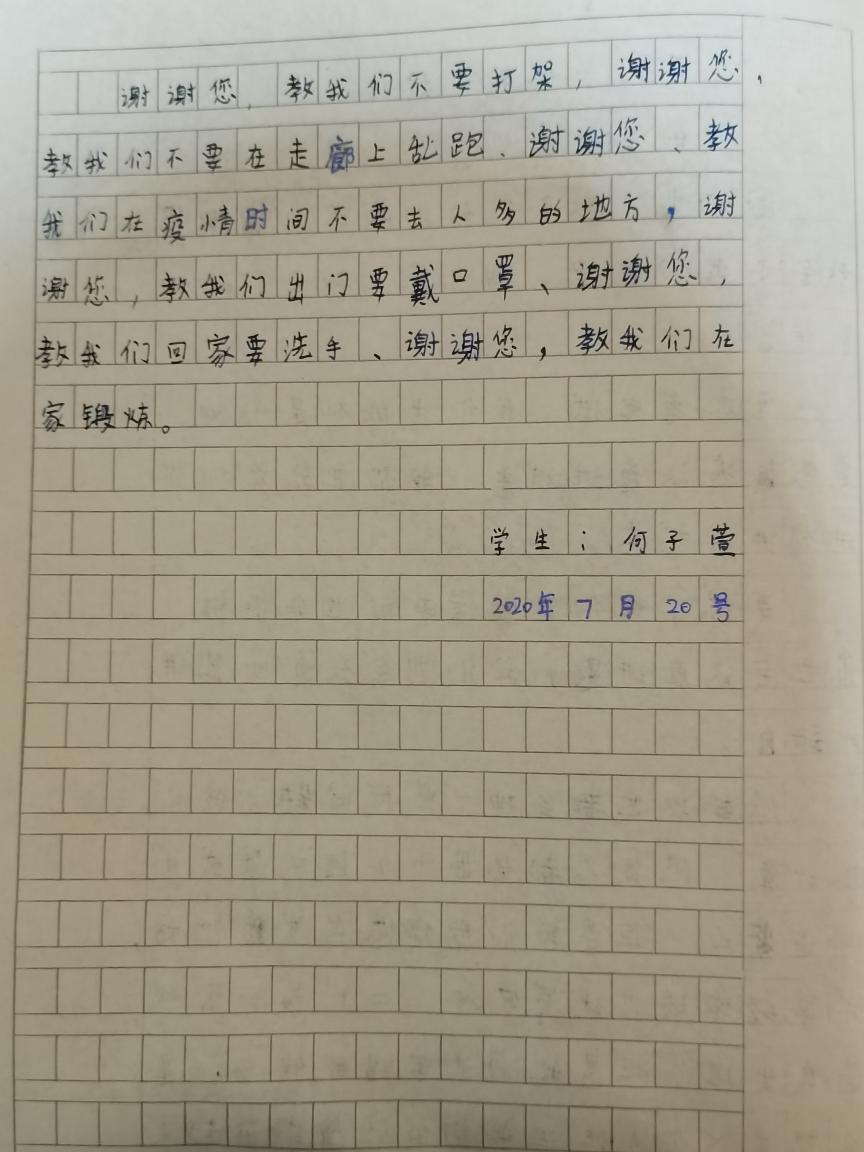 谢谢您，教我们不要打架，谢谢您，
教我们不要在走廊上乱跑、谢谢您、教
我们在疫情时间不要去人多的地方，谢
谢您，教我们出门要戴口罩、谢谢您，
教我们回家要洗手、谢谢您，教我们在
家锻炼。
学生：何子萱
2020年7月20号